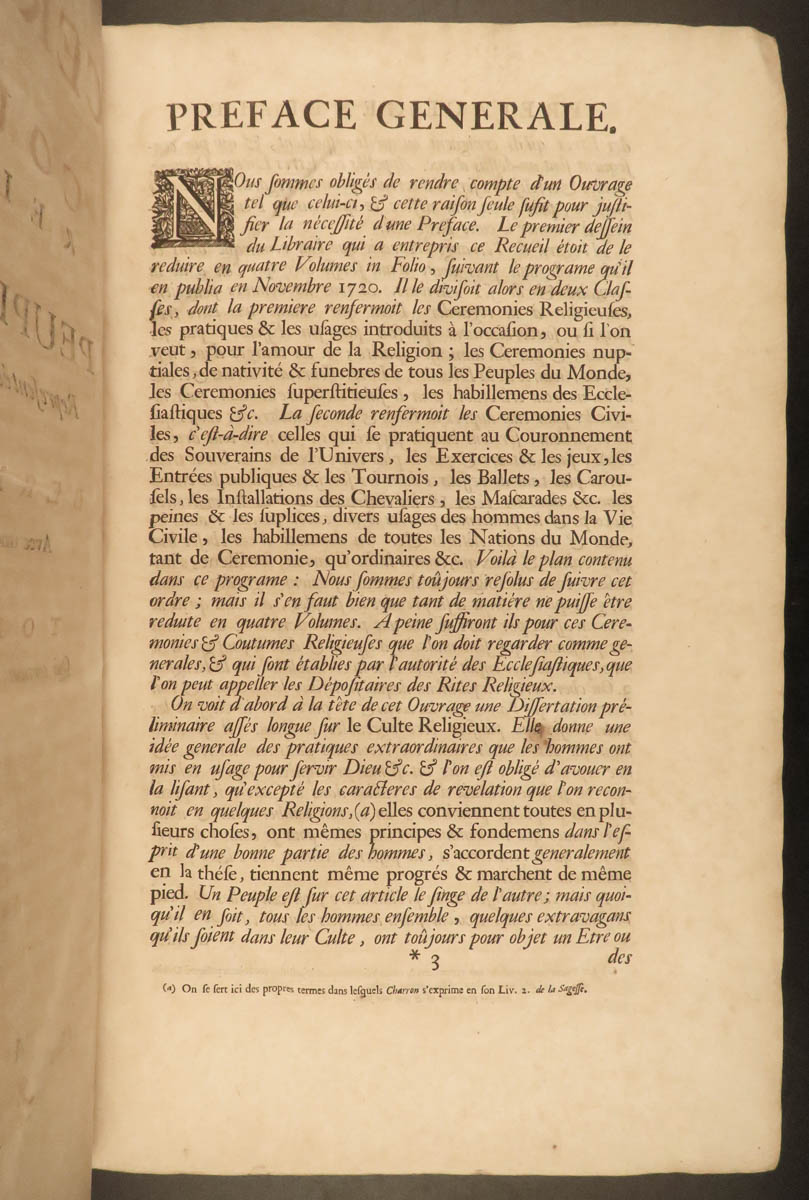 PREFACE GENERALE.
NOus ſommes obligés de rendre compte d'un Ouvrage
tel que celui-ci, & cette raiſon ſeule ſufit pour juſti-
fier la néceſſité d'une Preface. Le premier deſſein
du Libraire qui a entrepris ce Recueil étoit de le
reduire en quatre Volumes in Folio, ſuivant le programe qu'il
en publia en Novembre 1720. Il le diviſoit alors en deux Claſ-
ſes, dont la premiere renfermoit les Ceremonies Religieuſes,
les pratiques & les uſages introduits à l'occaſion, ou ſi l'on
veut, pour l'amour de la Religion; les Ceremonies nup-
tiales, de nativité & funebres de tous les Peuples du Monde,
les Ceremonies ſuperſtitieuſes, les habillemens des Eccle-
ſiaſtiques &c. La ſeconde renfermoit les Ceremonies Civi-
les, c'eſt-à-dire celles qui ſe pratiquent au Couronnement
des Souverains de l'Univers, les Exercices & les jeux, les
Entrées publiques & les Tournois, les Ballets, les Carou-
ſels, les Inſtallations des Chevaliers, les Maſcarades &c. les
peines & les ſuplices, divers uſages des hommes dans la Vie
Civile, les habillemens de toutes les Nations du Monde,
tant de Ceremonie, qu'ordinaires &c. Voilà le plan contenu
dans ce programe: Nous ſommes toûjours reſolus de ſuivre cet
ordre; mais il s'en faut bien que tant de matiére ne puiſſe être
reduite en quatre Volumes. A peine ſuffiront ils pour ces Cere-
monies & Coutumes Religieuſes que l'on doit regarder comme ge-
nerales, & qui ſont établies par l'autorité des Eccleſiaſtiques, que
l'on peut appeller les Dépoſitaires des Rites Religieux.
On voit d'abord à la tête de cet Ouvrage une Diſſertation pré-
liminaire aſſés longue ſur le Culte Religieux. Elle donne une
idée generale des pratiques extraordinaires que les hommes ont
mis en uſage pour ſervir Dieu &c. & l'on eſt obligé d'avouer en
la liſant, qu'excepté les caracteres de revelation que l'on recon-
noit en quelques Religions, (a) elles conviennent toutes en plu-
ſieurs choſes, ont mêmes principes & fondemens dans l'eſ-
prit d'une bonne partie des hommes, s'accordent generalement
en la théſe, tiennent même progrés & marchent de même
pied. Un Peuple eſt ſur cet article le ſinge de l'autre; mais quoi-
qu'il en ſoit, tous les hommes enſemble, quelques extravagans
qu'ils ſoient dans leur Culte, ont toûjours pour objet un Etre ou
* 3 des
(a) On ſe ſert ici des propres termes dans leſquels Charron s'exprime en ſon Liv. 2. de la Sageſſe.